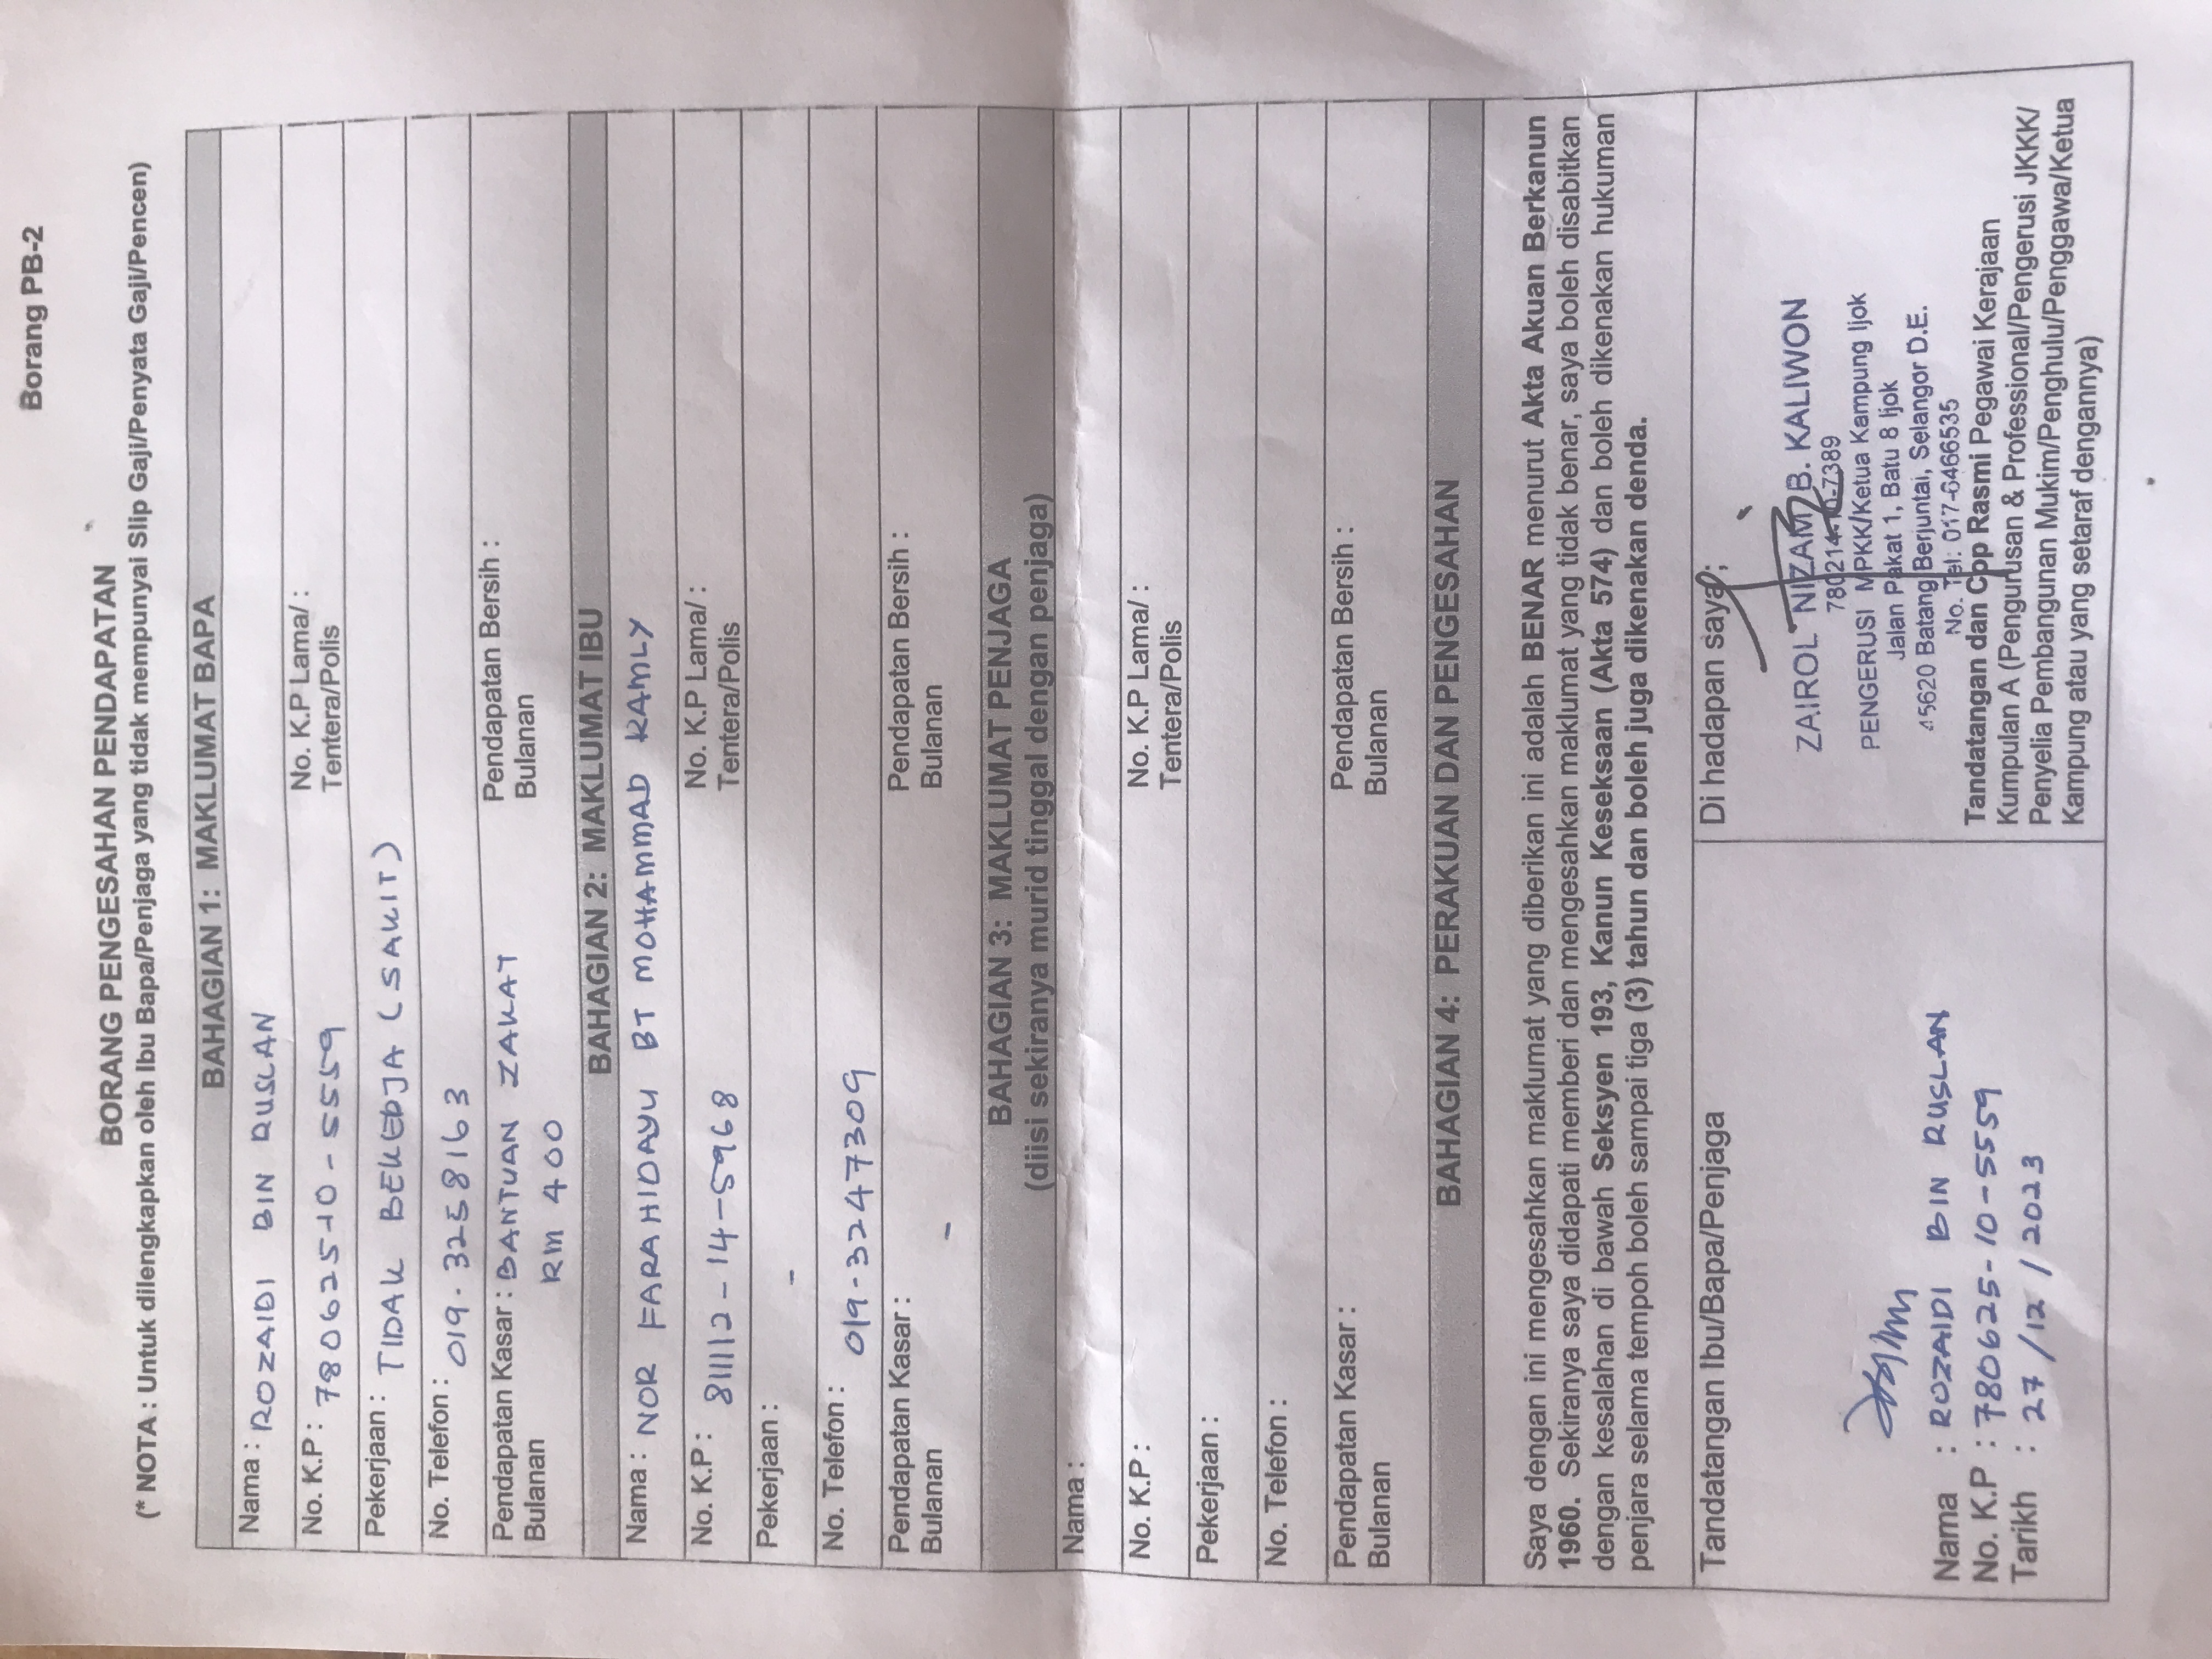 Borang PB-2
BORANG PENGESAHAN PENDAPATAN
(* NOTA : Untuk dilengkapkan oleh Ibu Bapa/Penjaga yang tidak mempunyai Slip Gaji/Penyata Gaji/Pencen)
BAHAGIAN 1: MAKLUMAT BAPA
Nama : ROZAIDI BIN RUSLAN
No. K.P : 780625-10-5559
No. K.P Lama/ :
Tentera/Polis
Pekerjaan : TIDAK BEKERJA (SAKIT)
No. Telefon : 019-3258163
Pendapatan Kasar : BANTUAN ZAKAT
Bulanan RM 400
Pendapatan Bersih :
Bulanan
BAHAGIAN 2: MAKLUMAT IBU
Nama : NOR FARAHIDAYU BT MOHAMMAD RAMLY
No. K.P : 811112-14-5968
No. K.P Lama/ :
Tentera/Polis
Pekerjaan : -
No. Telefon : 019-3247309
Pendapatan Kasar :
Bulanan -
Pendapatan Bersih :
Bulanan
BAHAGIAN 3: MAKLUMAT PENJAGA
(diisi sekiranya murid tinggal dengan penjaga)
Nama :
No. K.P :
No. K.P Lama/ :
Tentera/Polis
Pekerjaan :
No. Telefon :
Pendapatan Kasar :
Bulanan
Pendapatan Bersih :
Bulanan
BAHAGIAN 4: PERAKUAN DAN PENGESAHAN
Saya dengan ini mengesahkan maklumat yang diberikan ini adalah BENAR menurut Akta Akuan Berkanun
1960. Sekiranya saya didapati memberi dan mengesahkan maklumat yang tidak benar, saya boleh disabitkan
dengan kesalahan di bawah Seksyen 193, Kanun Keseksaan (Akta 574) dan boleh dikenakan hukuman
penjara selama tempoh boleh sampai tiga (3) tahun dan boleh juga dikenakan denda.
Tandatangan Ibu/Bapa/Penjaga
Nama : ROZAIDI BIN RUSLAN
No. K.P : 780625-10-5559
Tarikh : 27/12/2023
Di hadapan saya;
ZAIROL NIZAM B. KALIWON
780214-10-7389
PENGERUSI MPKK/Ketua Kampung Ijok
Jalan Pakat 1, Batu 8 Ijok
45620 Batang Berjuntai, Selangor D.E.
No. Tel: 017-6466535
Tandatangan dan Cop Rasmi Pegawai Kerajaan
Kumpulan A (Pengurusan & Professional/Pengerusi JKKK/
Penyelia Pembangunan Mukim/Penghulu/Penggawa/Ketua
Kampung atau yang setaraf dengannya)